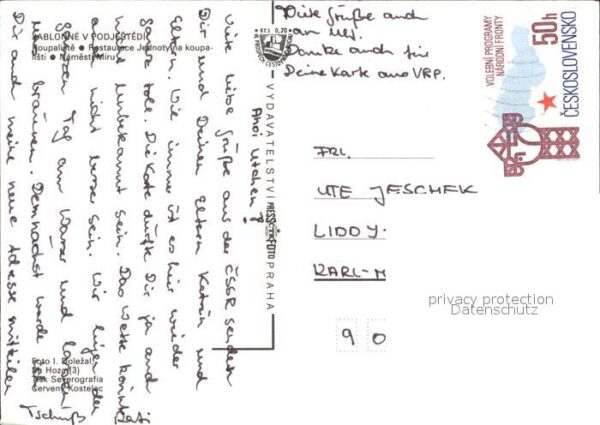 JABLONNÉ V PODJEŠTĚDÍ
Koupaliště ● Restaurace Jednoty na koupa-
lišti ● Náměstí Míru
Ahoi Utchen!
viele liebe Grüße aus der ČSSR senden
Dir und Deinen Eltern Katrin und
Eltern. Wie immer ist es hier wieder
ganz toll. Die Karte dürfte Dir ja auch
nicht unbekannt sein. Das Wetter könnte
auch nicht besser sein. Wir liegen den
ganzen Tag am Wasser und lassen
uns bräunen. Demnächst werde ich
Dir auch meine neue Adresse mitteilen
Tschüß Kati
Foto I. Doležal
Na Hoza (3)
Tisk Severografia
Červený Kostelec
Kčs 0,20
VYDAVATELSTVÍ PRESSFOTO PRAHA
Liebe Grüße auch
an Uli.
Danke auch für
Deine Karte aus VRP.
VOLEBNÍ PROGRAMY
NÁRODNÍ FRONTY
50h
ČESKOSLOVENSKO
FRL.
UTE JESCHEK
LIDDY.
KARL-M
90
privacy protection
Datenschutz